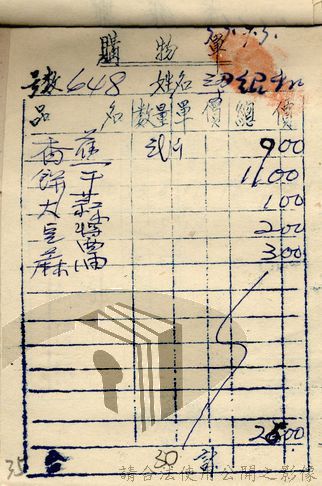 購物單
號數 648 姓名
品名 數量 單價 總價
香蕉 900
餅干 1100
大蒜 100
豆 200
麻 300
2600
合 30 計
35
請合法使用公開之影像